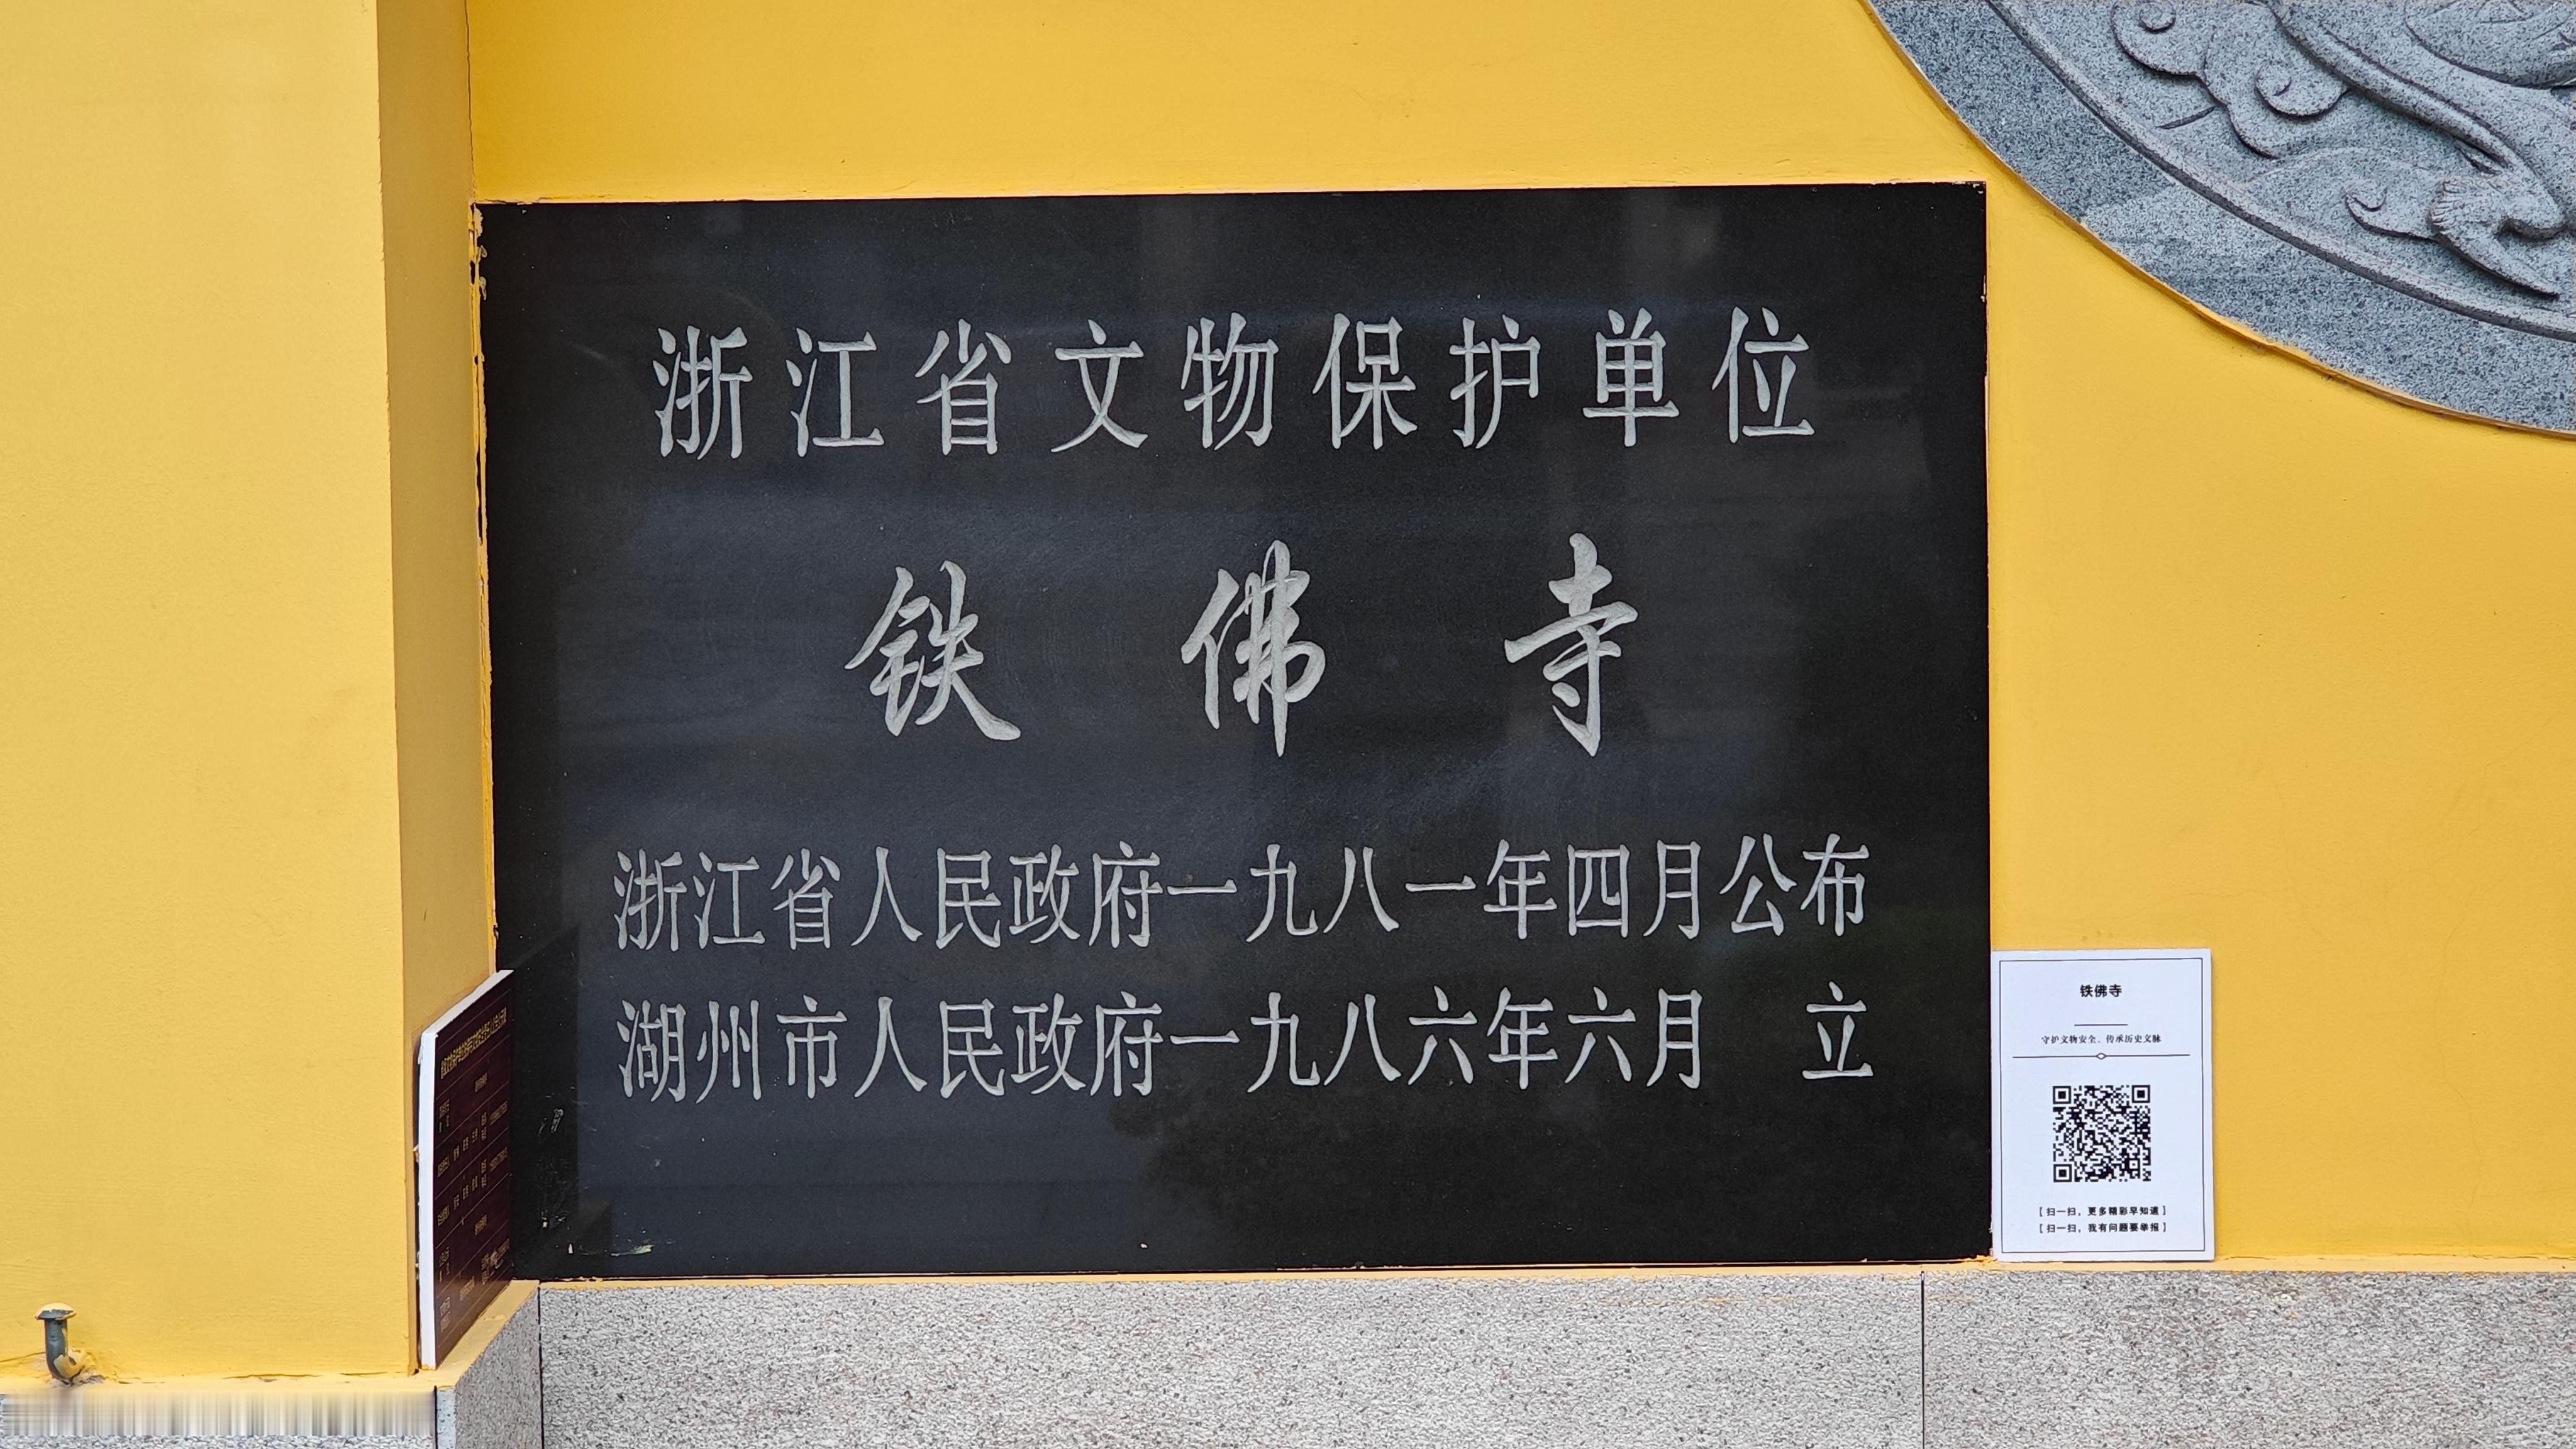 浙江省文物保护单位
铁佛寺
浙江省人民政府一九八一年四月公布
湖州市人民政府一九八六年六月 立
铁佛寺
守护文物安全、传承历史文脉
【扫一扫，更多精彩早知道】
【扫一扫，我有问题要举报】